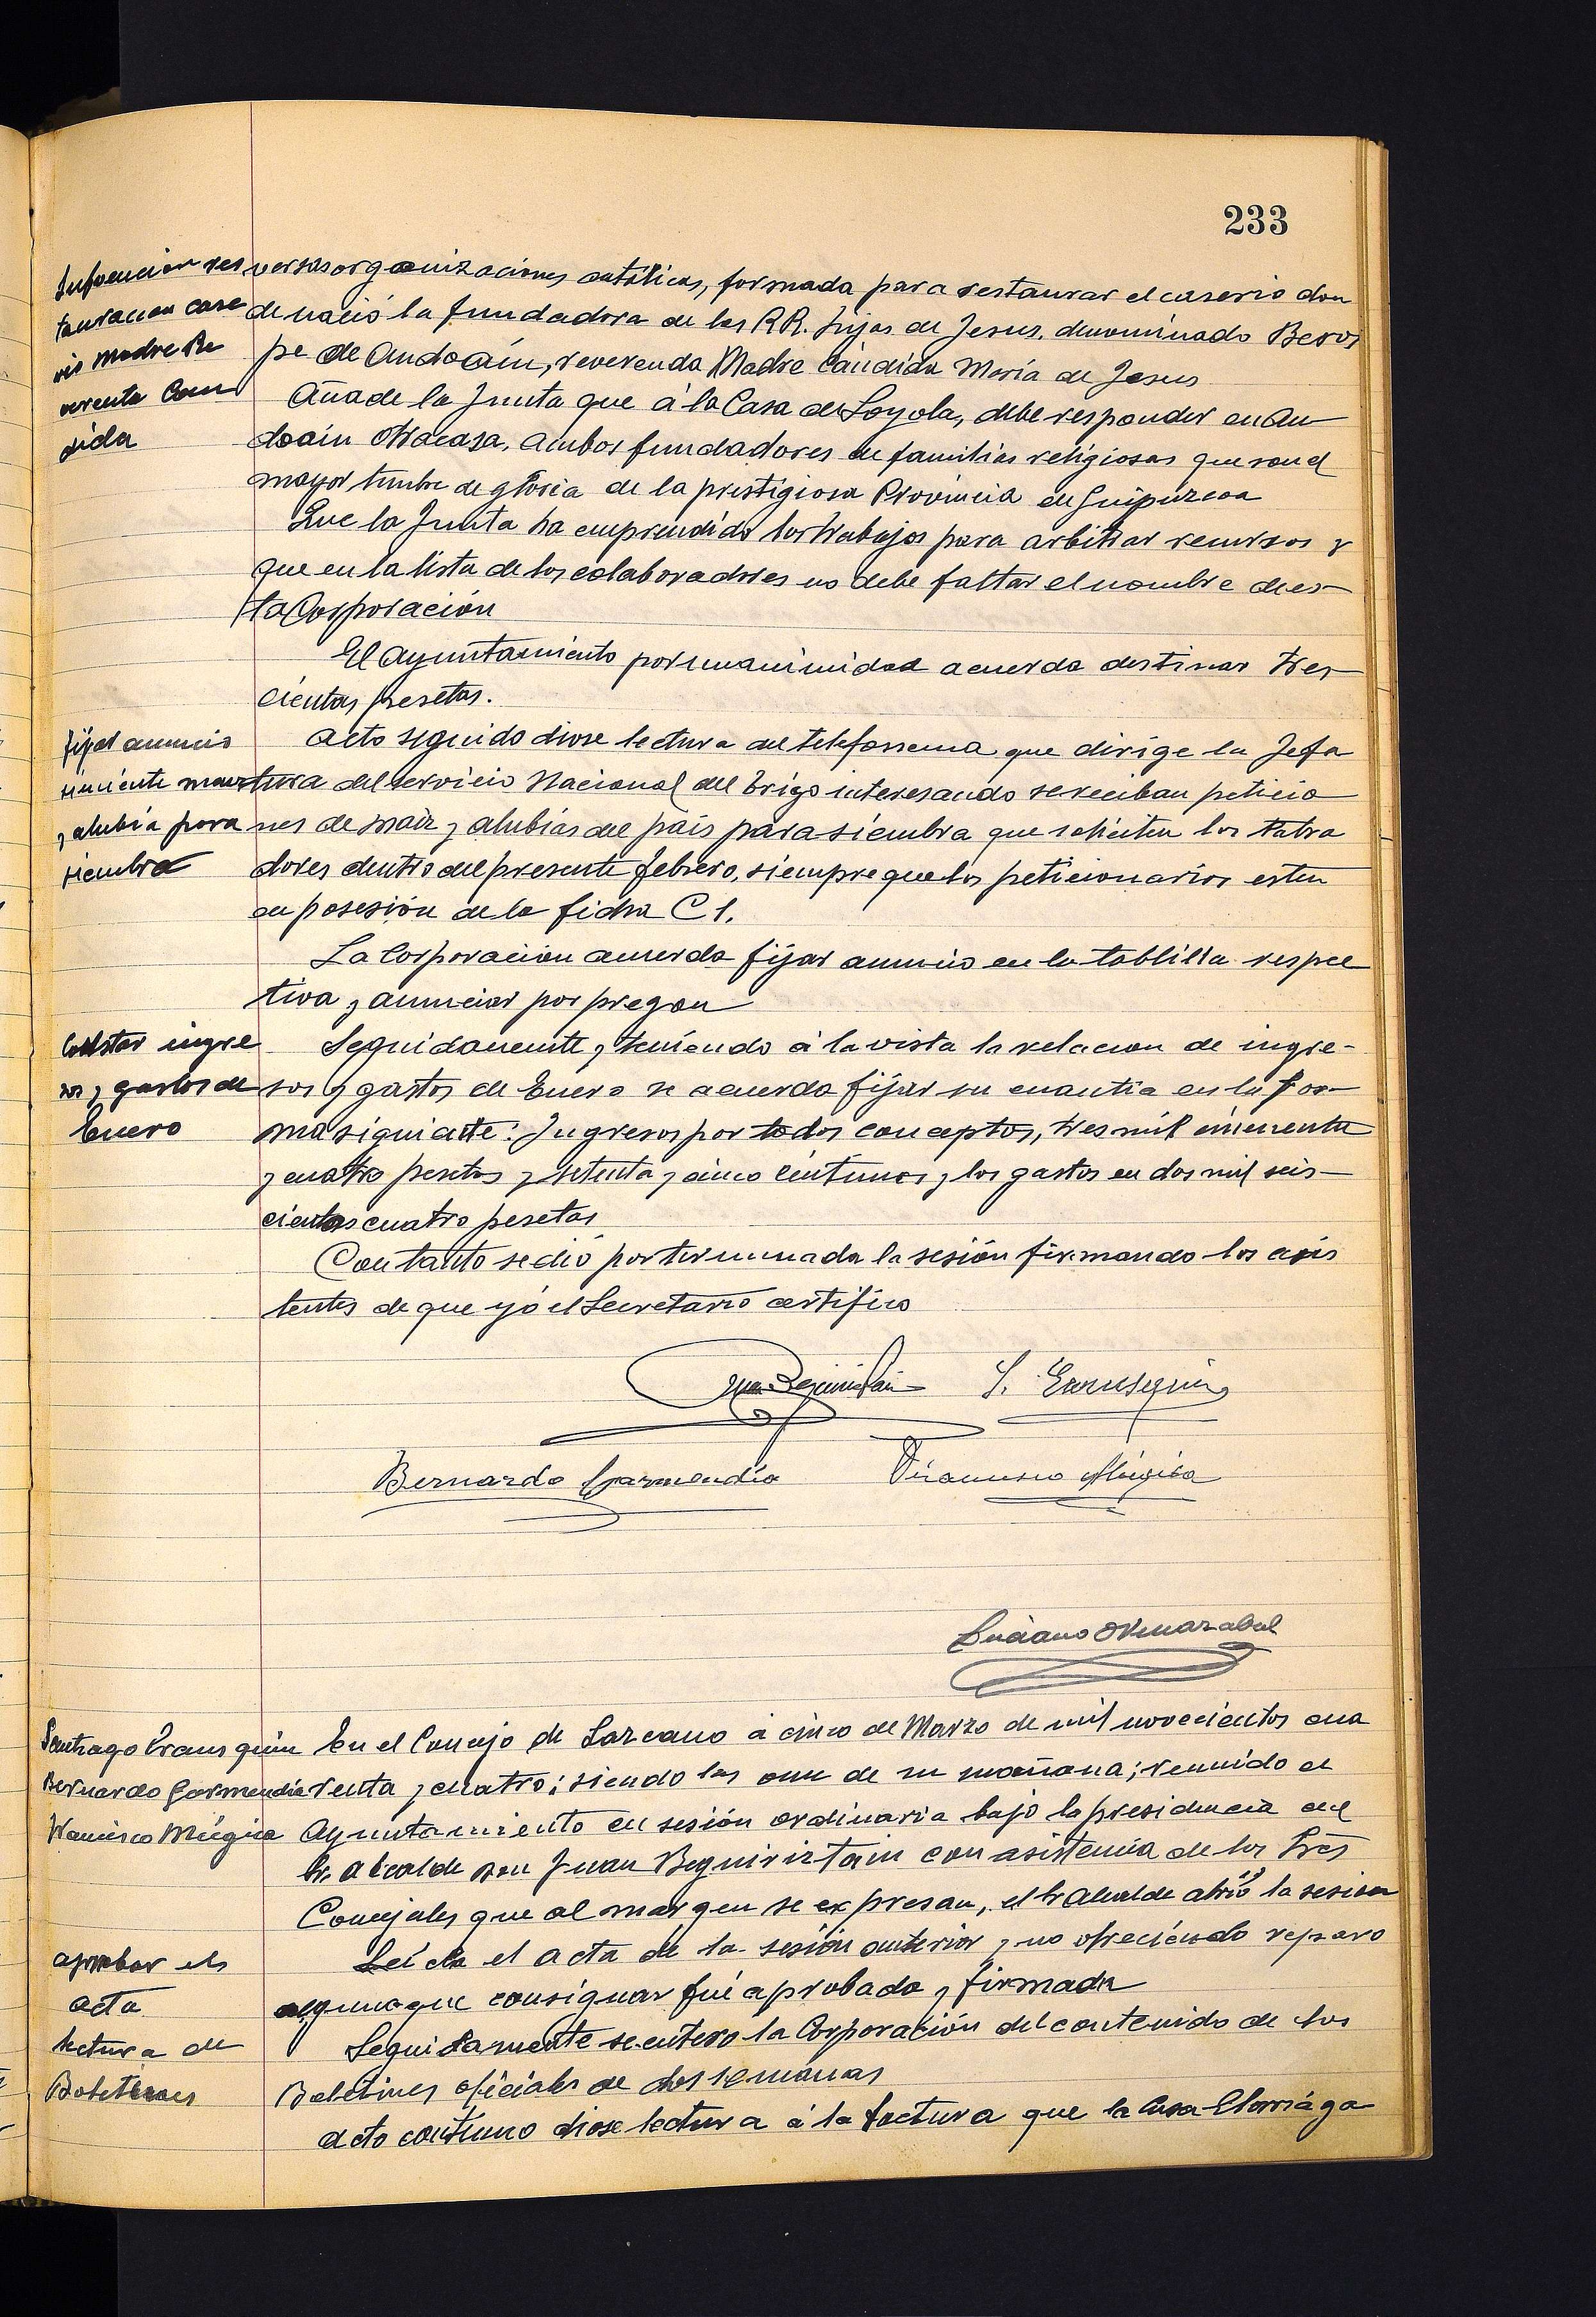 233
Subvencion res
tauracion case
rio Madre Re
verenta Can
dida
versas organizaciones católicas, formada para restaurar el caserio don
de nació la fundadora de las RR. hijas de Jesus, denominado Beros
pe de Andoaín, reverenda Madre Cándida María de Jesus
Añade la Junta que á la Casa de Loyola, debe responder en An
doaín otra casa, ambos fundadores de familias religiosas que son el
mayor timbre de gloria de la prestigiosa Provincia de Guipuzcoa
Que la Junta ha emprendido los trabajos para arbitrar recursos y
que en la lista de los colaboradores no debe faltar el nombre de es-
ta Corporación
El Ayuntamiento por unanimidad acuerda destinar tres-
cientas pesetas.
fijar anuncio
simiente maiz
y alubia para
siembra
Acto seguido diose lectura del telefonema que dirige la Jefa
tura del servicio Nacional del trigo interesando se reciban peticio
nes de maiz y alubias del país para siembra que soliciten los labra
dores dentro del presente febrero, siempre que los peticionarios esten
en posesión de la ficha C 1.
La Corporación acuerda fijar anuncio en la tablilla respec
tiva y anunciar por pregon
Constar ingre
sos y gastos de
Enero
Seguidamente y teniendo á la vista la relacion de ingre-
sos y gastos de Enero se acuerda fijar su cuantia en la for-
ma siguiente: Ingresos por todos conceptos, tres mil cincuenta
y cuatro pesetas y setenta y cinco centimos y los gastos en dos mil seis-
cientas cuatro pesetas
Con tanto se dió por terminada la sesión firmando los asis
tentes de que yó el Secretario certifico
Juan Beguiristain S. Erausquin
Bernardo Garmendía Francisco Múgica
Luciano Ormazabal
Santiago Erausquin
Bernardo Garmendia
Francisco Múgica
En el Concejo de Lazcano á cinco de Marzo de mil novecientos cua
renta y cuatro; siendo las once de su mañana; reunido el
Ayuntamiento en sesión ordinaria bajo la presidencia del
Sr. Alcalde don Juan Beguiriztain con asistencia de los Sres
Concejales que al margen se expresan, el Sr Alcalde abrió la sesion
aprobar el
acta
Leída el acta de la sesión anterior y no ofreciendo reparo
alguno que consignar fué aprobada y firmada
lectura de
Boletines
Seguidamente se enteró la Corporación del contenido de los
Boletines oficiales de dos semanas
Acto continuo diose lectura á la factura que la Casa Elorriaga